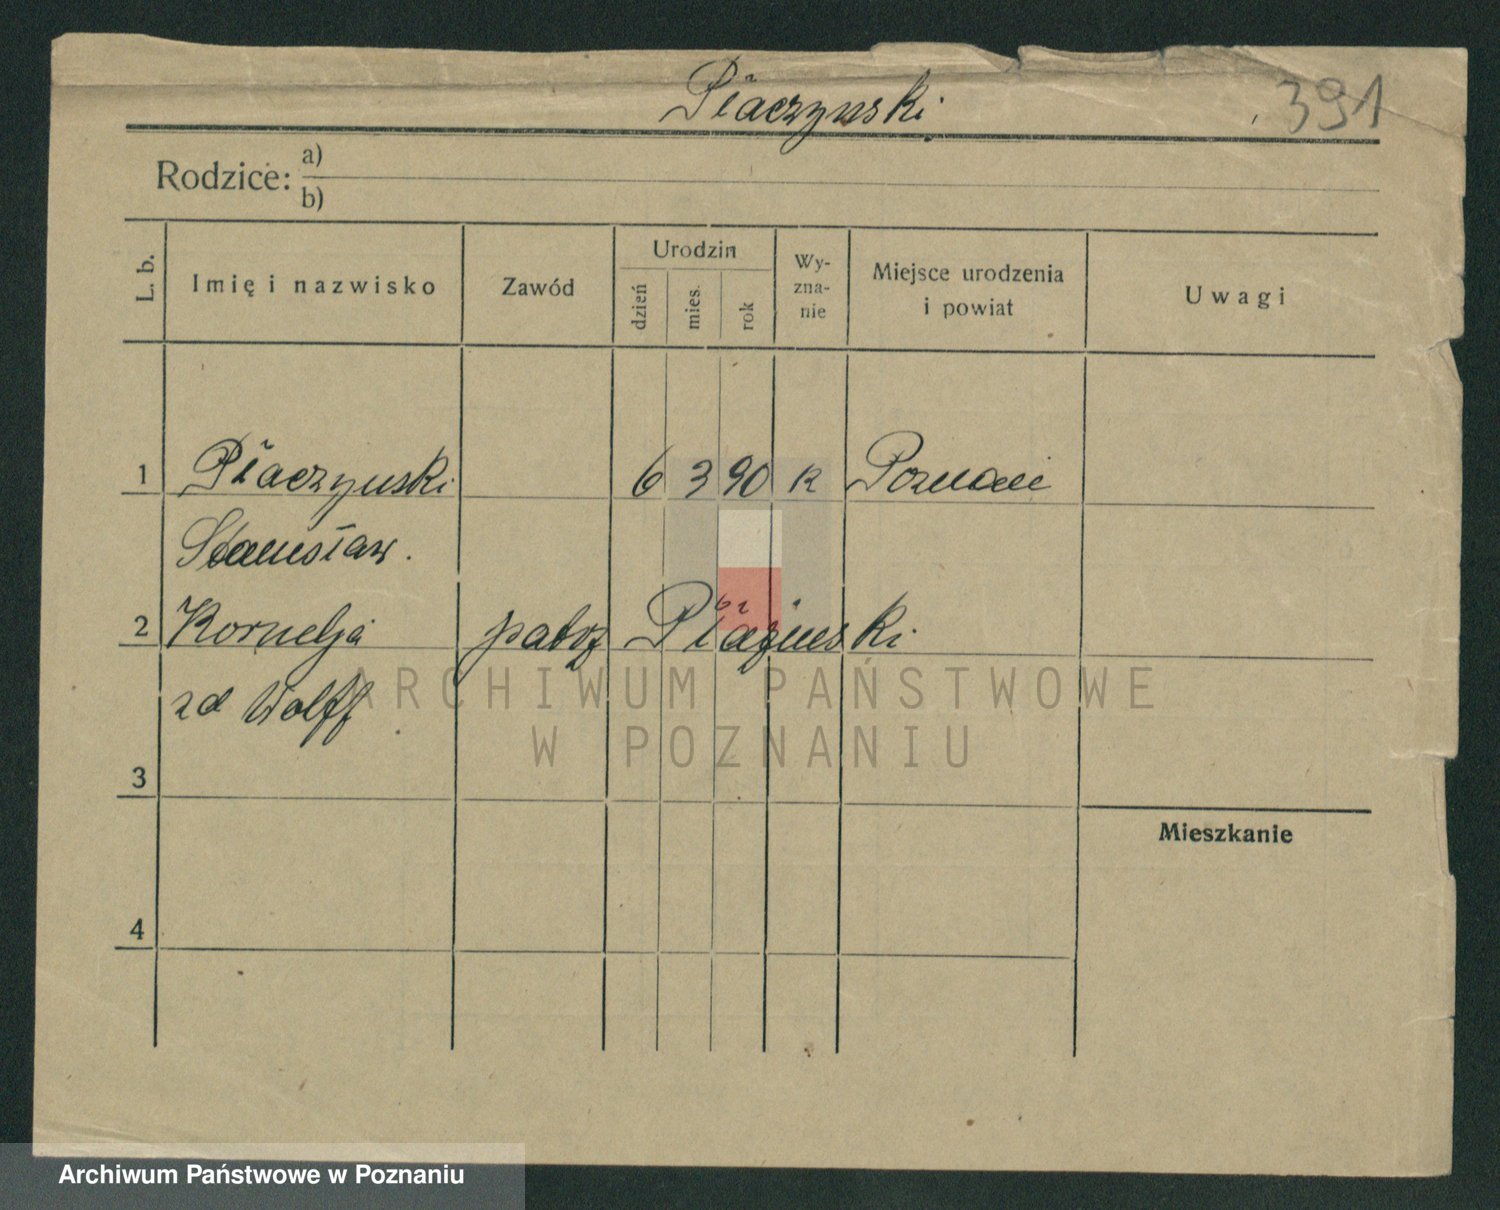 Płaczynski
391
Rodzice: a)
b)
L. b.
Imię i nazwisko
Zawód
Urodzin
dzień
mies.
rok
Wy-
zna-
nie
Miejsce urodzenia
i powiat
Uwagi
1 Płaczynski 6 3 90 k
Stanisław.
2 Kornelja patrz
zd Wolff
ARCHIWUM PAŃSTWOWE
W POZNANIU
3
Mieszkanie
4
Archiwum Państwowe w Poznaniu